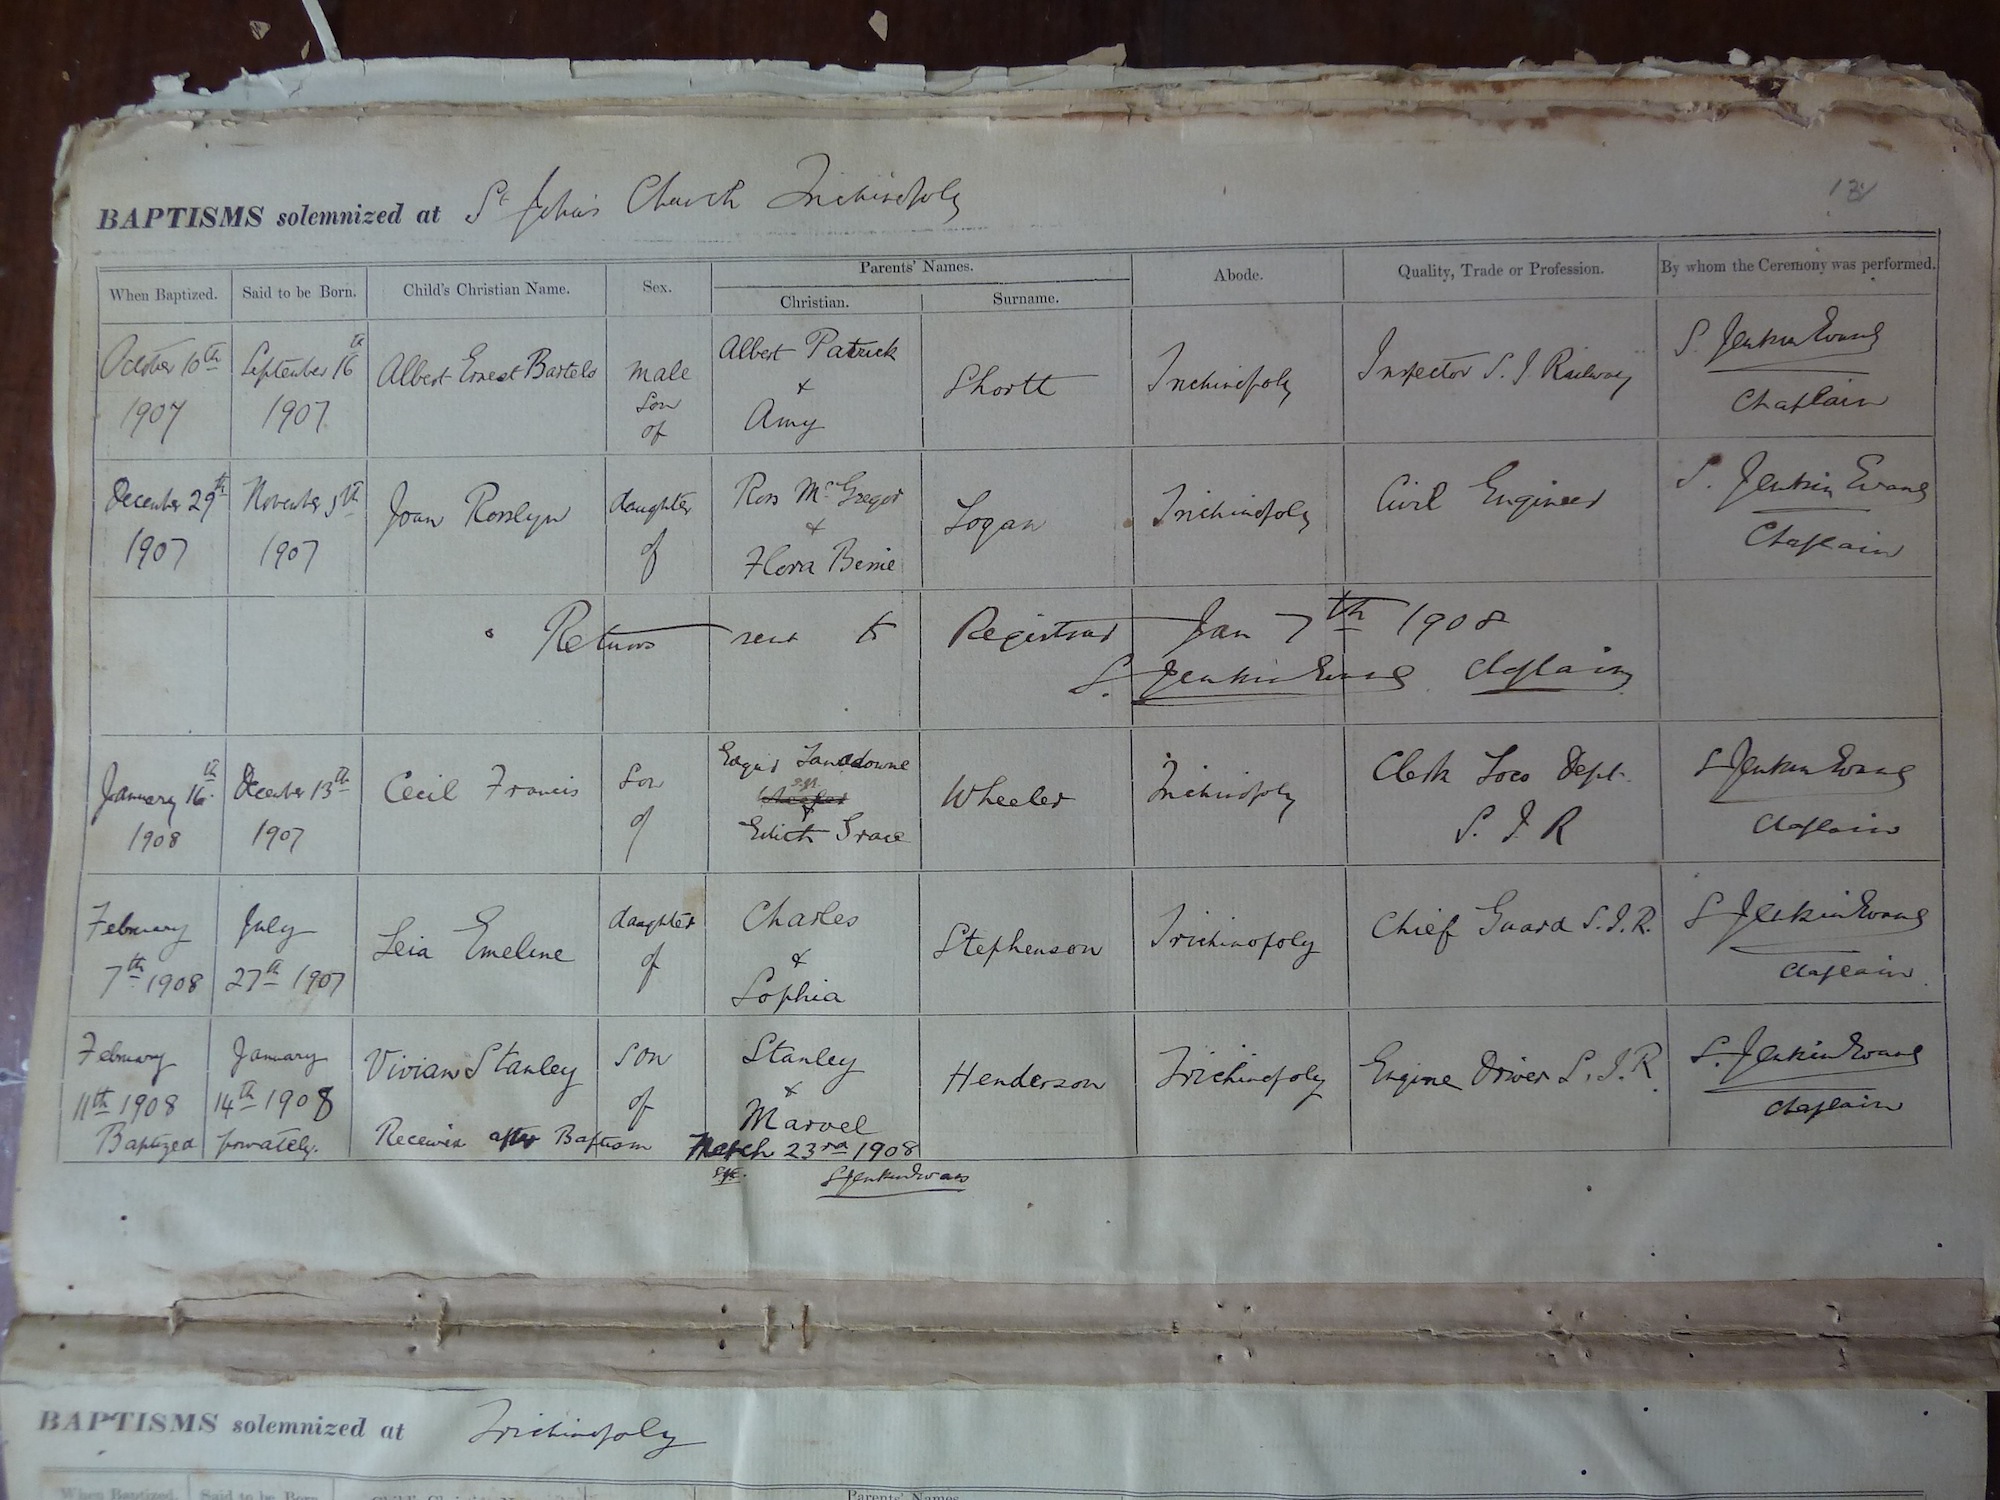 BAPTISMS solemnized at St John's Church Trichinopoly
When Baptized. Said to be Born. Child's Christian Name. Sex. Parents' Names. Christian. Surname. Abode. Quality, Trade or Profession. By whom the Ceremony was performed.
October 10th 1907
September 16th 1907
Albert Ernest Bartels
male
son
of
Albert Patrick
&
Amy
Shortt
Trichinopoly
Inspector S. I Railway
S. Jenkin Evans
Chaplain
December 29th
1907
November 5th
1907
Joan Rosslyn
daughter
of
Ross McGregor
&
Flora Bessie
Logan
Trichinopoly
Civil Engineer
S. Jenkin Evans
Chaplain
Returns sent to Registrar Jan 7th 1908
S. Jenkin Evans Chaplain
January 16th
1908
December 13th
1907
Cecil Francis
Son
of
Edgar Lansdowne
&
Edith Grace
Wheeler
Trichinopoly
Clerk Loco Dept.
S. I R
S Jenkin Evans
Chaplain
February
7th 1908
July
27th 1907
Leia Emeline
daughter
of
Charles
&
Sophia
Stephenson
Trichinopoly
Chief Guard S.I.R.
S Jenkin Evans
Chaplain
February
11th 1908
January
14th 1908
Vivian Stanley
son
of
Stanley
&
Marvel
Henderson
Trichinopoly
Engine Driver S.I.R.
S. Jenkin Evans
Chaplain
Baptized privately. Received after Baptism March 23rd 1908
S Jenkin Evans
BAPTISMS solemnized at Trichinopoly
When Baptized. Said to be Born. Child's Christian Name. Parents' Names.